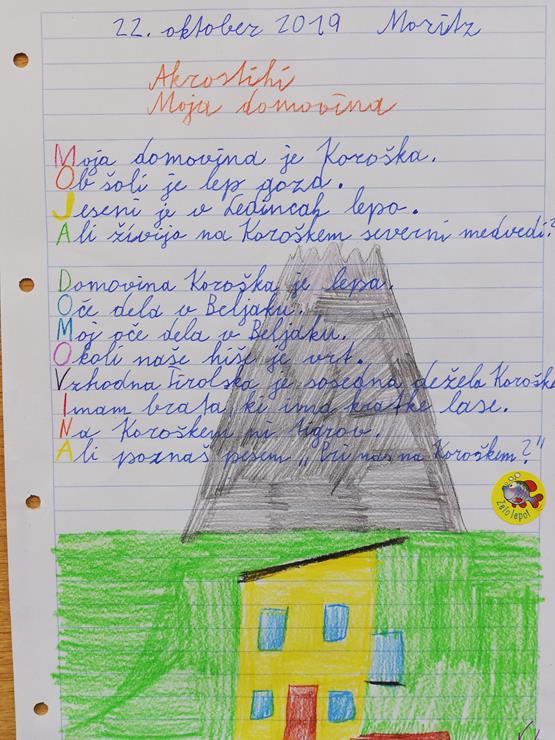 22. oktober 2019 Moritz
Akrostihi
Moja domovina
Moja domovina je Koroška.
Ob šoli je lep gozd.
Jeseni je v Ledincah lepo.
Ali živijo na Koroškem severni medvedi?
Domovina Koroška je lepa.
Oče dela v Beljaku.
Moj oče dela v Beljaku.
Okoli naše hiše je vrt.
Vzhodna Tirolska je sosedna dežela Koroške
Imam brata, ki ima kratke lase.
Na Koroškem ni tigrov.
Ali poznaš pesem „Pri nas na Koroškem?"
Zelo lepo!